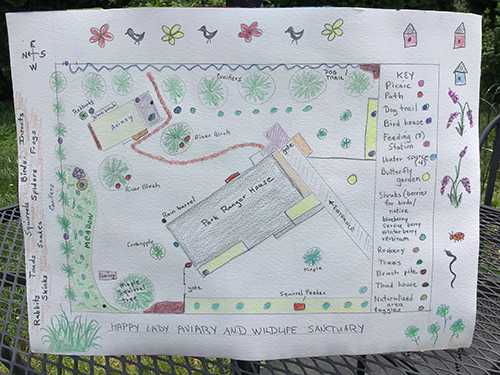 E
N S
W
Conifers
DOG TRAIL!
Rabbits
Aviary
River Birch
River Birch
Gate
Park Ranger House
Entrance
Rain barrel
Crabapple
MEADOW
Conifers
Maple
Maple
tree
gate
Squirrel Feeder
Insects
Frogs
Birds
Spiders
Squirrels
Snakes
Toads
Skinks
Rabbits
KEY
Picnic
Path
Dog trail
Bird house
Feeding (3)
Station
Water source
(4)
Butterfly
garden
Shrubs (berries
for birds/
native
blueberry
Service berry
winterberry
verbinum
Rockery
Trees
Brush pile
Toad house
Naturalized
area
veggies
HAPPY LADY AVIARY AND WILDLIFE SANCTUARY